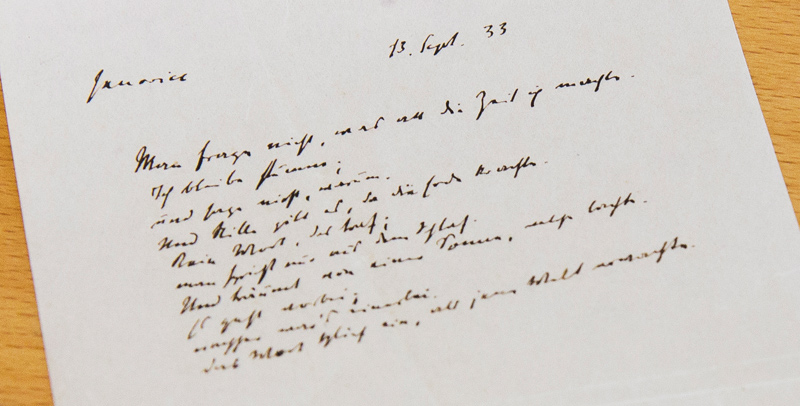 Janovice
13. Sept. 33
Man frage nicht, was all die Zeit ich machte.
Ich bleibe stumm;
und sage nicht, warum.
Und Stille gibt es, da die Erde krachte.
Kein Wort, das traf;
man spricht nur aus dem Schlaf.
Und träumt von einer Sonne, welche lachte.
Es geht vorbei;
nachher war's einerlei.
Das Wort schlief ein, als jene Welt erwachte.